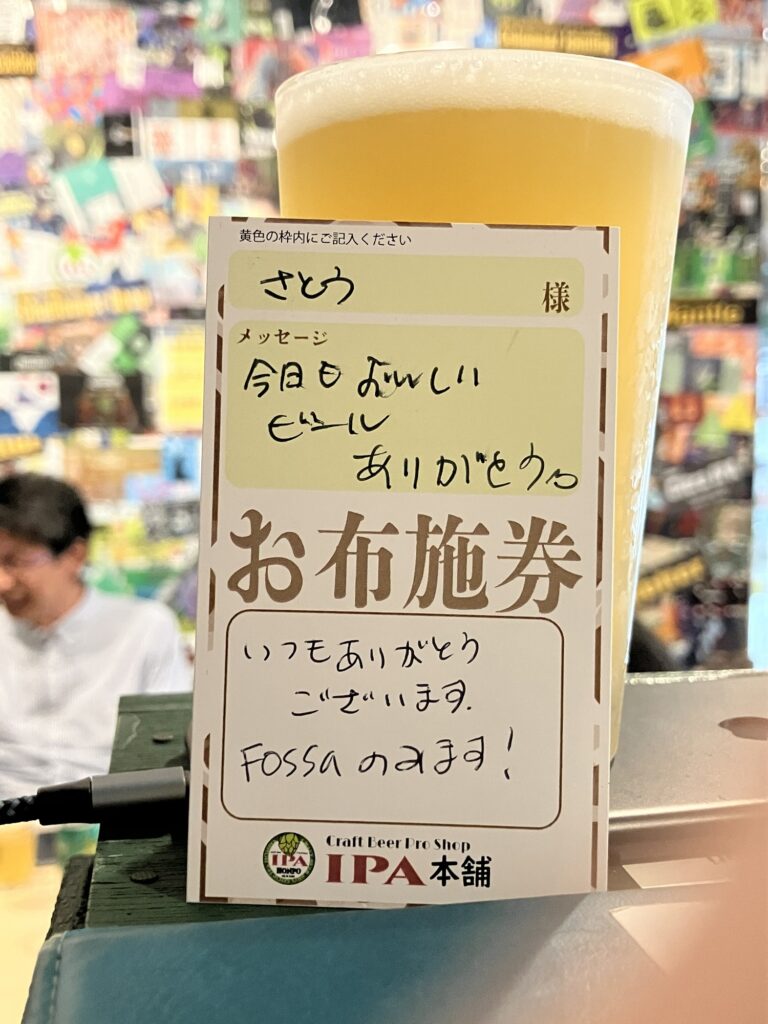 黄色の枠内にご記入ください
さとう 様
メッセージ
今日もおいしい
ビール
ありがとう。
お布施券
いつもありがとう
ございます.
FOSSaのみます!
Craft Beer Pro Shop
IPA本舗
IPA
HONPO